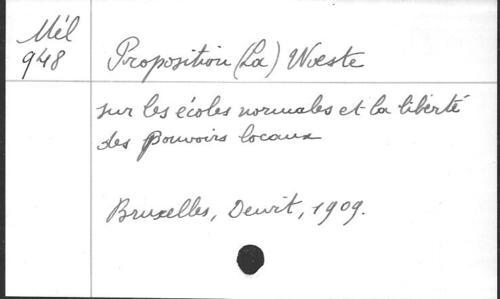 Mél
948
Proposition (La) Woeste
sur les écoles normales et la liberté
des pouvoirs locaux
Bruxelles, Dewit, 1909.